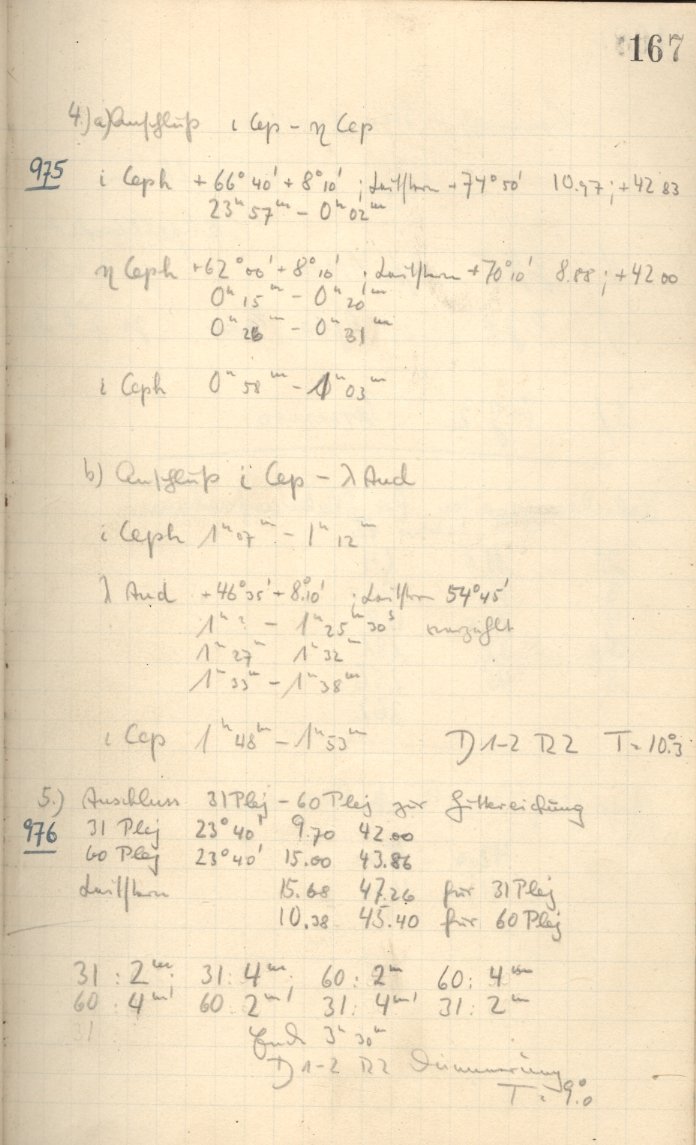 167
4.) a) Anschluß ι Cep – η Cep
975 ι Ceph +66° 40' + 8° 10' ; Leitstern +74° 50' 10.97 ; +42 83
23ʰ 57ᵐ – 0ʰ 02ᵐ
η Ceph +62° 00' + 8° 10' ; Leitstern +70° 10' 8.88 ; +42 00
0ʰ 15ᵐ – 0ʰ 20ᵐ
0ʰ 26ᵐ – 0ʰ 31ᵐ
ι Ceph 0ʰ 58ᵐ – 1ʰ 03ᵐ
b) Anschluß ι Cep – λ And
ι Ceph 1ʰ 07ᵐ – 1ʰ 12ᵐ
λ And +46° 35' + 8° 10' ; Leitstern 54° 45'
1ʰ ? – 1ʰ 25ᵐ 30ˢ verzählt
1ʰ 27ᵐ 1ʰ 32ᵐ
1ʰ 33ᵐ – 1ʰ 38ᵐ
ι Cep 1ʰ 48ᵐ – 1ʰ 53ᵐ D 1–2 R 2 T = 10.°3
5.) Anschluss 31 Plej – 60 Plej zur Gittereichung
976 31 Plej 23° 40' 9.70 42.00
60 Plej 23° 40' 15.00 43.86
Leitstern 15.68 47.26 für 31 Plej
10.38 45.40 für 60 Plej
31 : 2ᵐ; 31 : 4ᵐ; 60 : 2ᵐ 60 : 4ᵐ
60 : 4ᵐ' 60 : 2ᵐ' 31 : 4ᵐ' 31 : 2ᵐ
31
Ende 3ʰ 30ᵐ
D 1–2 R 2 Dämmerung
T = 9.°0